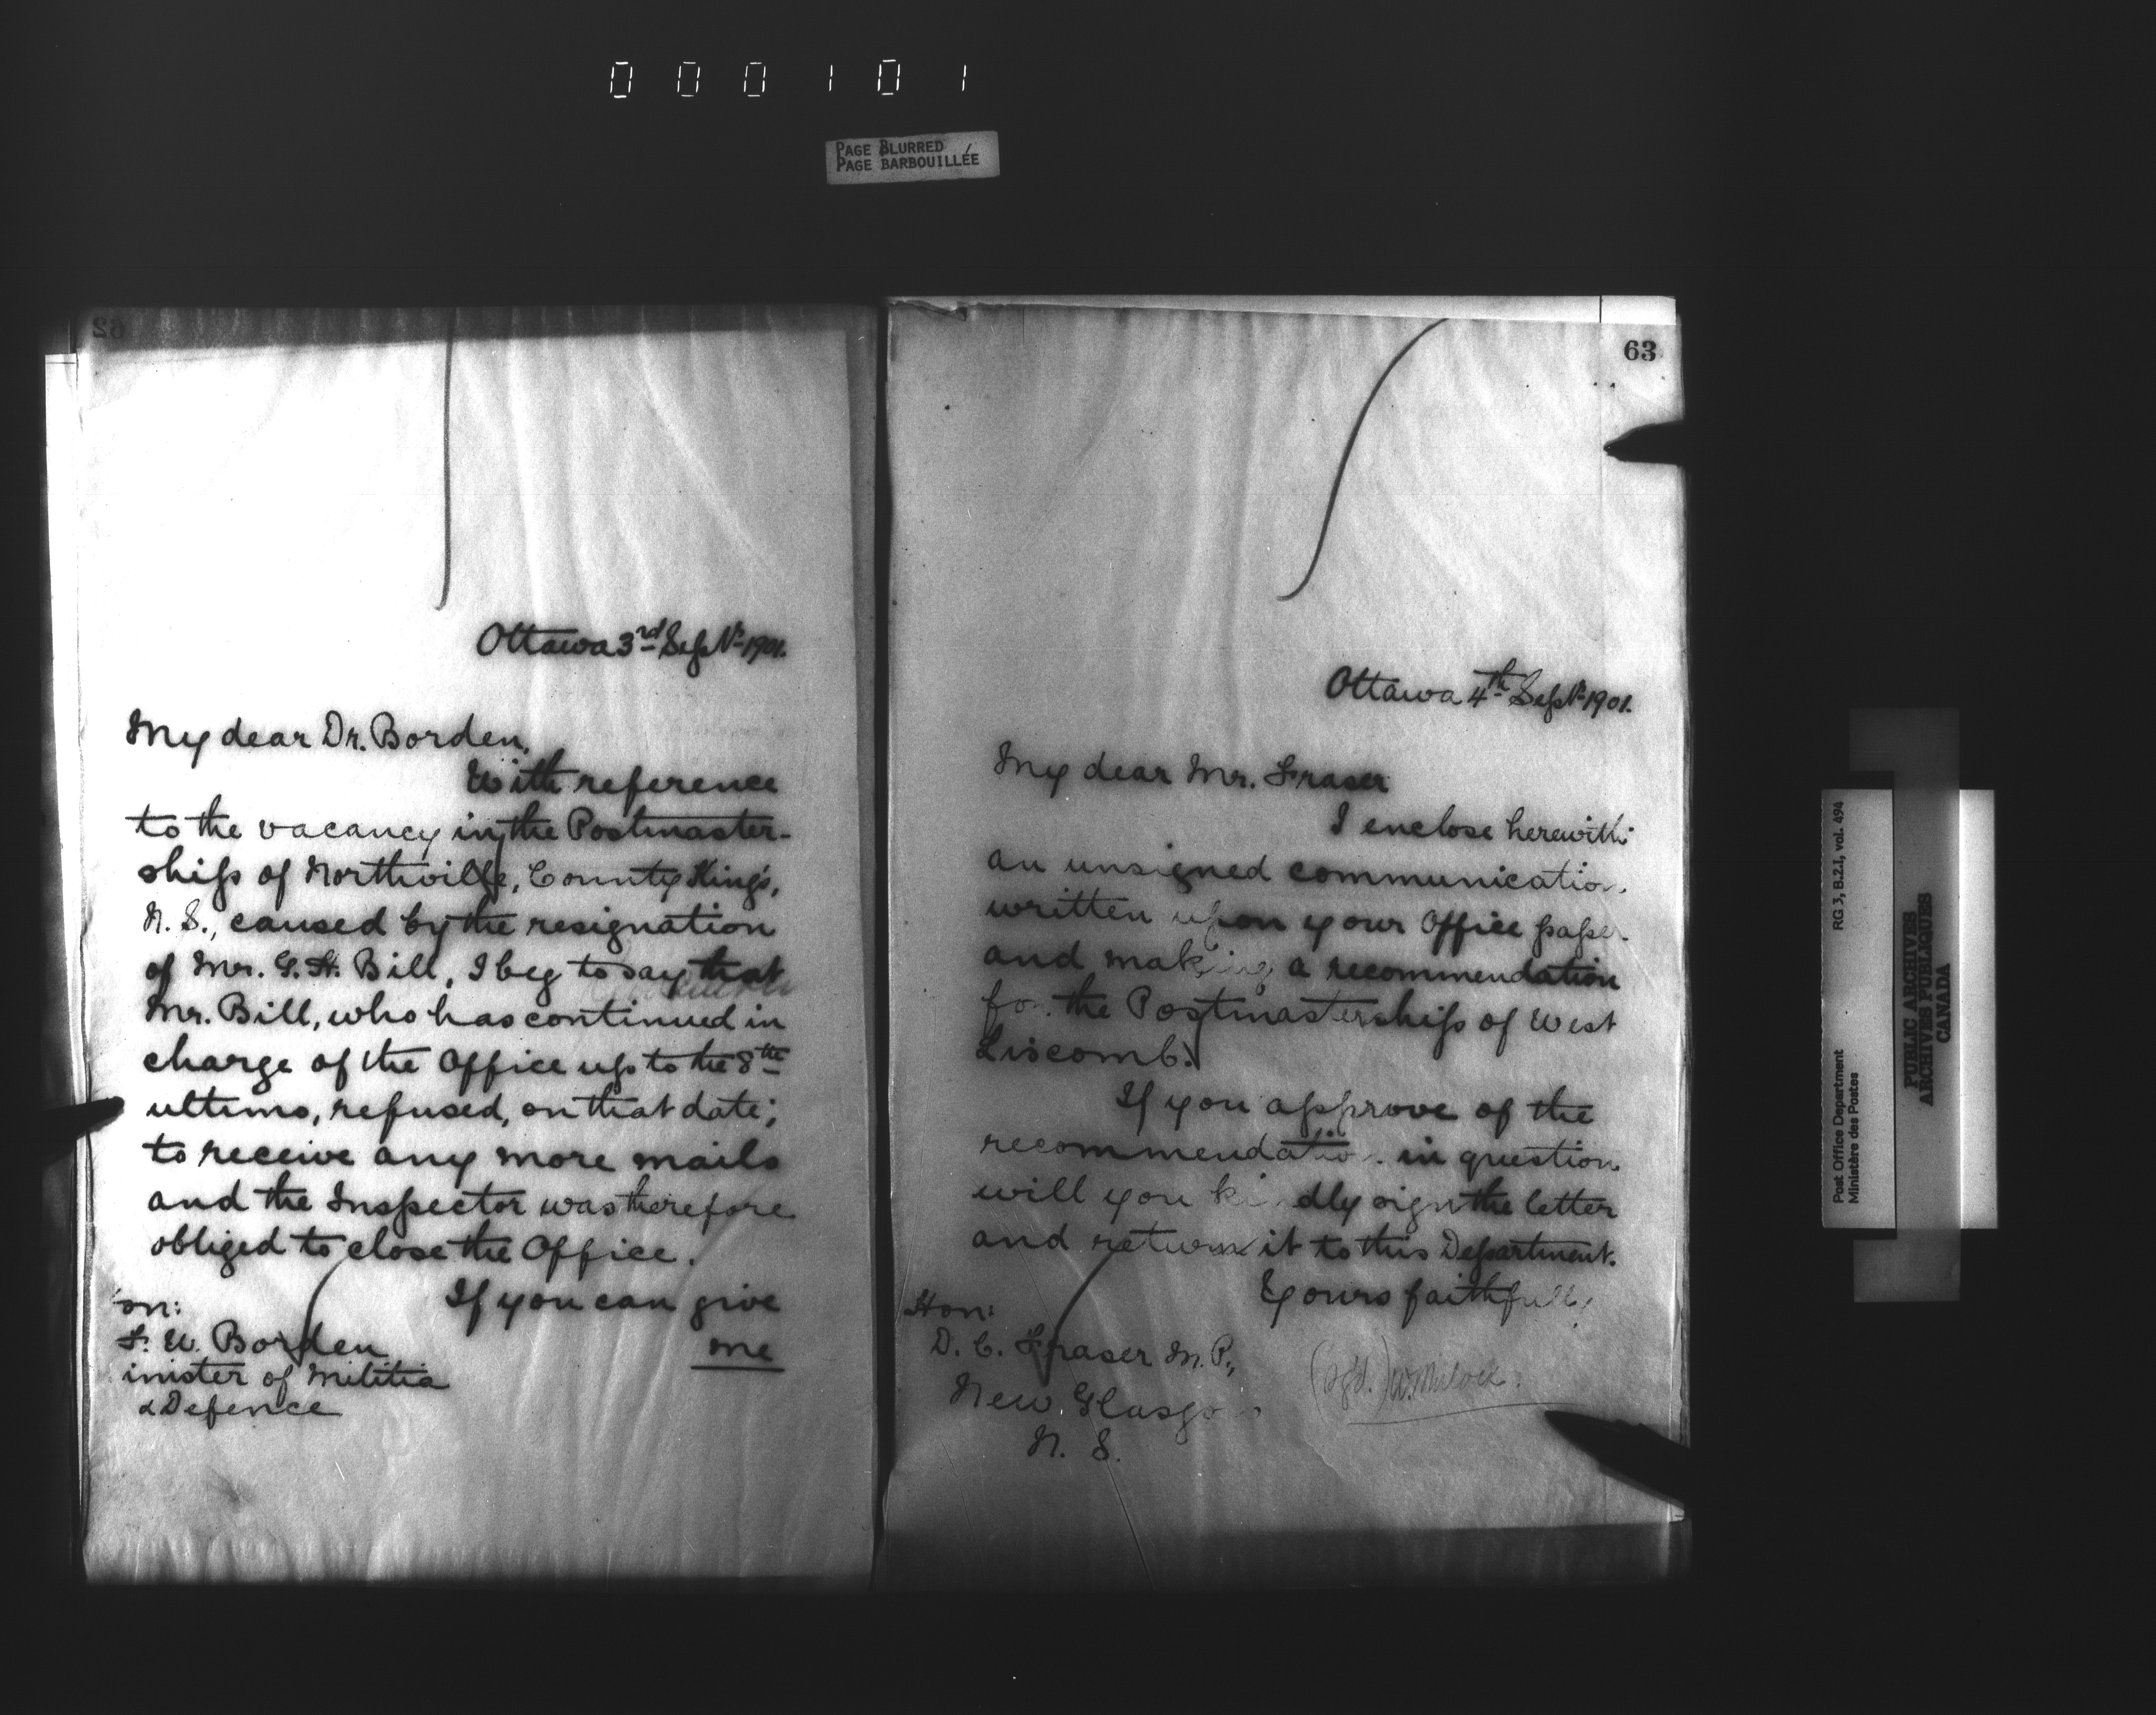 000101
PAGE BLURRED
PAGE BARBOUILLÉE
62
Ottawa 3rd Sept 1901.
My dear Dr. Borden,
With reference
to the vacancy in the Postmaster-
ship of Northville, County King's,
N. S., caused by the resignation
of Mr. G. H. Bill, I beg to say that
Mr. Bill, who has continued in
charge of the Office up to the 8th
ultimo, refused, on that date,
to receive any more mails
and the Inspector was therefore
obliged to close the Office.
If you can give
me
on:
F. W. Borden
inister of Militia
& Defence
63
Ottawa 4th Sept 1901.
My dear Mr. Fraser
I enclose herewith
an unsigned communication
written upon your Office paper
and making a recommendation
for the Postmastership of West
Liscomb.
If you approve of the
recommendation in question
will you kindly sign the letter
and return it to this Department.
Yours faithfully
Hon:
D. C. Fraser M. P.,
New Glasgow
N. S.
(sgd.) W. Mulock.
Post Office Department RG 3, B.2.1, vol. 494
Ministère des Postes
PUBLIC ARCHIVES
ARCHIVES PUBLIQUES
CANADA